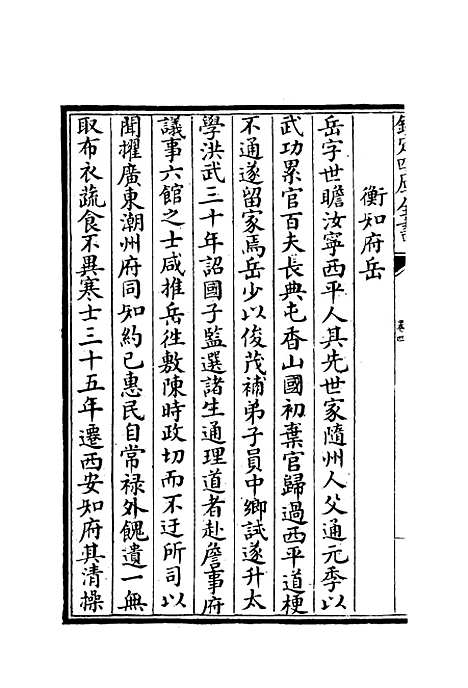 欽定四庫全書
卷四
衡知府岳
岳字世瞻汝寧西平人其先世家隨州人父通元季以
武功累官百夫長典屯香山國初棄官歸過西平道梗
不通遂留家焉岳少以俊茂補弟子員中鄉試遂升太
學洪武三十年詔國子監選諸生通理道者赴詹事府
議事六館之士咸推岳徃敷陳時政切而不迂所司以
聞擢廣東潮州府同知約已惠民自常禄外餽遺一無
取布衣蔬食不異寒士三十五年遷西安知府其清操